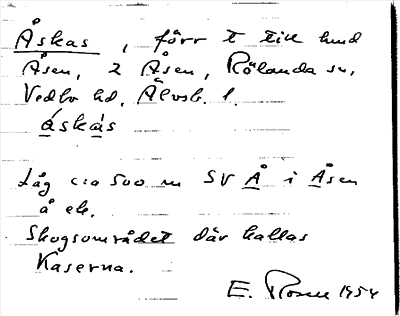 Åskas, förr t till hmd
Åsen, 2 Åsen, Rölanda sn,
Vedbo hd, Älvsb. l.
áskàs
Låg c:a 500 m SV Å i Åsen
å ek.
Skogsområdet där kallas
Kaserna.
E. Rosen 1954